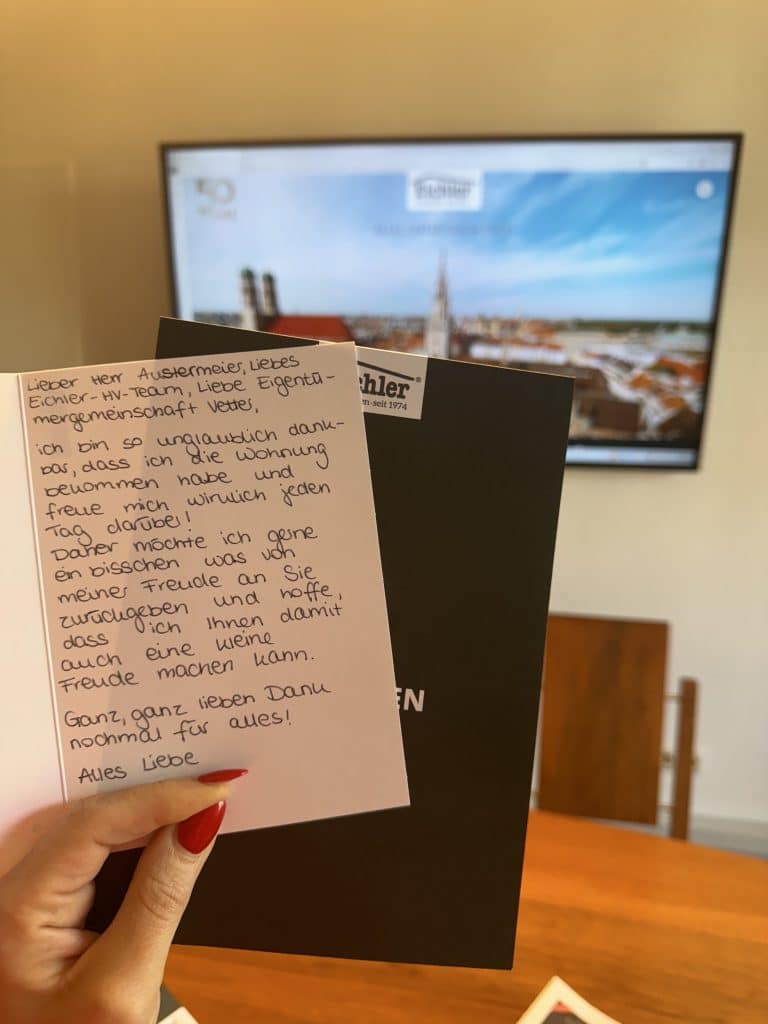 Eichler
50
Lieber Herr Austermeier, Liebes
Eichler-HV-Team, Liebe Eigentü-
mergemeinschaft Vetter,
ich bin so unglaublich dank-
bar, dass ich die Wohnung
bekommen habe und
freue mich wirklich jeden
Tag darüber!
Daher möchte ich gerne
ein bisschen was von
meiner Freude an Sie
zurückgeben und hoffe,
dass ich Ihnen damit
auch eine kleine
Freude machen kann.
Ganz, ganz lieben Dank
nochmal für alles!
Alles Liebe
chler®
en·seit 1974
EN